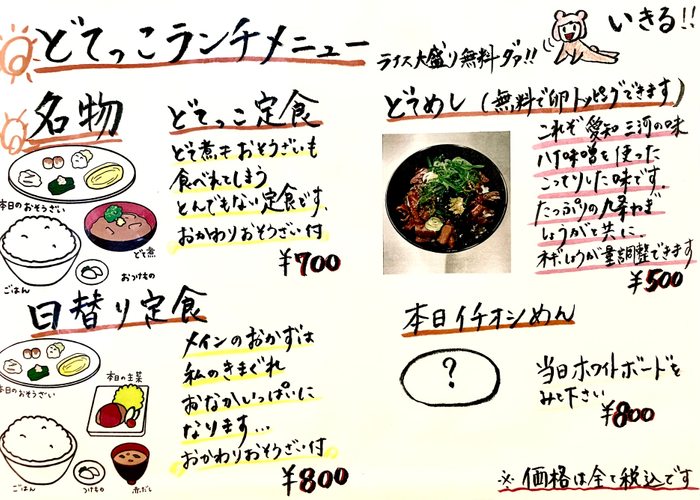 どてっこランチメニュー
ライス大盛り無料ダァ!!
いきる!!
名物
どてっこ定食
どて煮干おそうざいも
食べれてしまう
とんでもない定食です。
おかわりおそうざい付
¥700
本日のおそうざい
どて煮
ごはん
おつけもの
どてめし (無料で卵トッピングできます)
これぞ愛知三河の味
八丁味噌を使った
こってりした味です。
たっぷりの九条ねぎ
しょうがと共に。
ネギしょうが量調整できます
¥500
日替り定食
メインのおかずは
私のきまぐれ
おなかいっぱいに
なります…
おかわりおそうざい付
¥800
本日のおそうざい
本日の主菜
ごはん
つけもの
赤だし
本日イチオシめん
?
当日ホワイトボードを
みて下さい
¥800
※価格は全て税込です